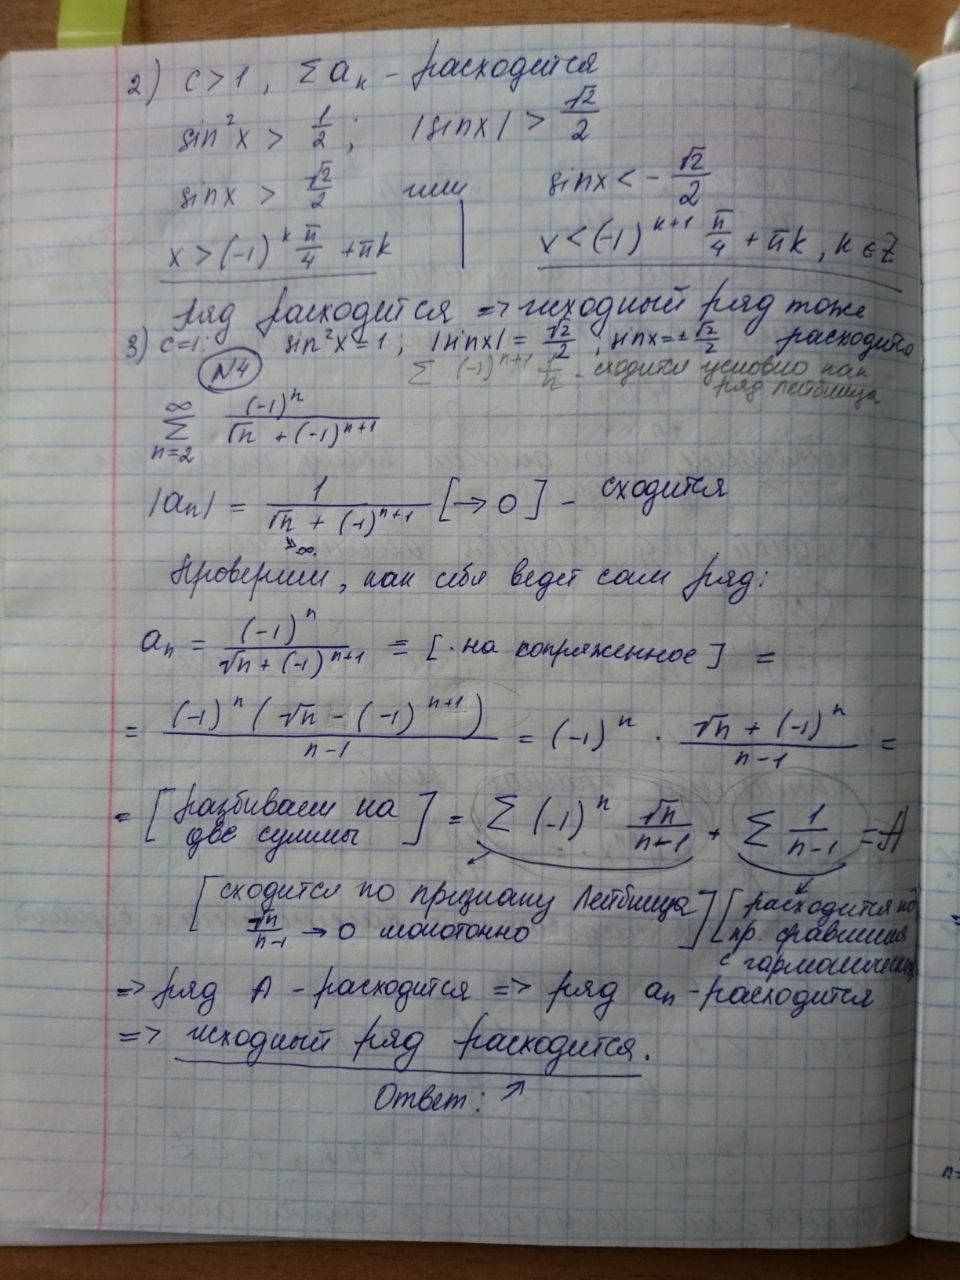 2) c>1, Σaₙ - расходится
sin²x > 1/2; |sinx| > √2/2
sinx > √2/2 или sinx < -√2/2
x > (-1)^k π/4 + πk | x < (-1)^(k+1) π/4 + πk, k∈Z
ряд расходится => исходный ряд тоже
3) c=1: sin²x = 1; |sinx| = √2/2; sinx = ±√2/2 расходится
№4 Σ (-1)^(n+1) 1/n - сходится условно как
ряд Лейбница
Σ_(n=2)^∞ (-1)^n / (√n + (-1)^(n+1))
|aₙ| = 1 / (√n + (-1)^(n+1)) [→ 0] - сходится
→∞.
Проверим, как себя ведет сам ряд:
aₙ = (-1)^n / (√n + (-1)^(n+1)) = [· на сопряженное] =
= (-1)^n (√n - (-1)^(n+1)) / (n-1) = (-1)^n · (√n + (-1)^n) / (n-1) =
= [разбиваем на две суммы] = Σ (-1)^n √n/(n-1) + Σ 1/(n-1) = A
[сходится по признаку Лейбница √n/(n-1) → 0 монотонно] [расходится по пр. сравнения с гармоническим
=> ряд A - расходится => ряд aₙ - расходится
=> исходный ряд расходится.
Ответ: ↗